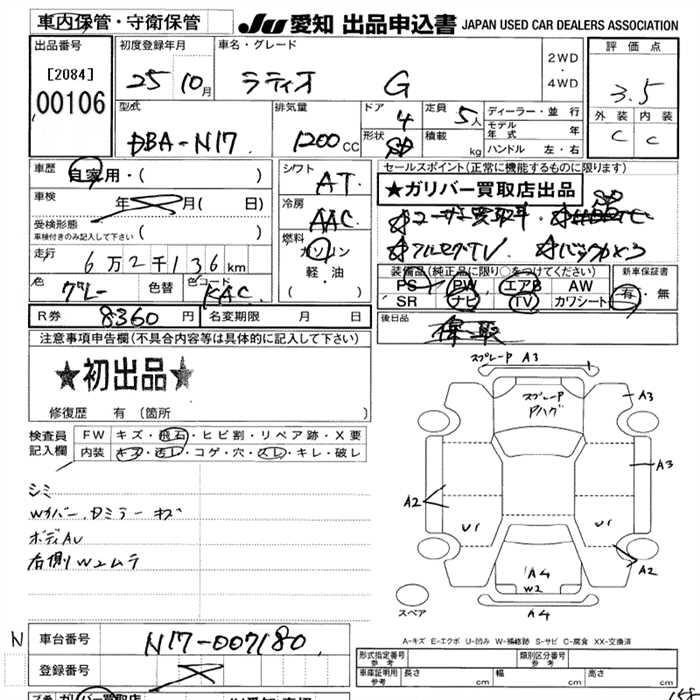 車内保管・守衛保管
JU 愛知 出品申込書 JAPAN USED CAR DEALERS ASSOCIATION
出品番号
[2084]
00106
初度登録年月
25 10月
車名・グレード
ラティオ G
2WD
・
4WD
評価点
3.5
外装 内装
C C
型式
DBA-N17
排気量
1200cc
ドア
4
形状
定員
5人
積載
kg
ディーラー・並行
モデル年式 年
ハンドル 左・右
車歴
自家用・( )
車検
年 月( 日)
受検形態
車検付きのみ記入して下さい ( )
走行
6万2千136km
色
グレー
色替
色コード
KAC
シフト
AT
冷房
AAC
燃料
ガソリン
軽・油
( )
セールスポイント(正常に機能するものに限ります)
★ガリバー買取店出品
☆ユーザー買取車
☆フルセグTV ☆バックカメラ
装備品(純正品に限り○をつけてください)
PS PW エアB AW
SR ナビ TV カワシート
新車保証書
有・無
後日品
R券 8360円
名変期限 月 日
注意事項申告欄(不具合内容等は具体的に記入して下さい)
★初出品★
修復歴 有(箇所
検査員記入欄
FW キズ・飛石・ヒビ割・リペア跡・X要
内装 キズ・汚レ・コゲ・穴・スレ・キレ・破レ
シミ
Wカバー、Dミラー キズ
ボディAU
右側W2ムラ
スプレーP A3
スプレーP
Pハゲ
A3
A3
A2
U1
U1
A2
A4
W2
A4
スペア
A-キズ E-エクボ U-凹み W-補修跡 S-サビ C-腐食 XX-交換済
N
車台番号
N17-007180
登録番号
型式指定番号
参考
類別区分番号
参考
車庫証明用
参考
長さ cm
幅 cm
高さ cm
ガリバー買取店